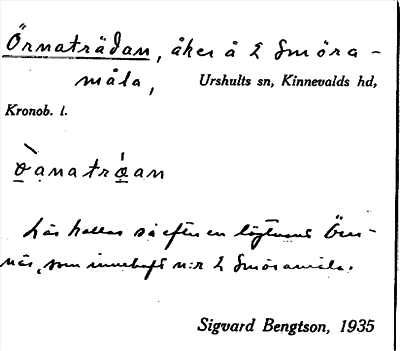 Örnaträdan, åker å 2 Smöra-
måla,
Urshults sn, Kinnevalds hd,
Kronob. l.
Lär kallas så efter en löjtnant Örn-
, som innehaft n:r 2 Smöramåla.
Sigvard Bengtson, 1935